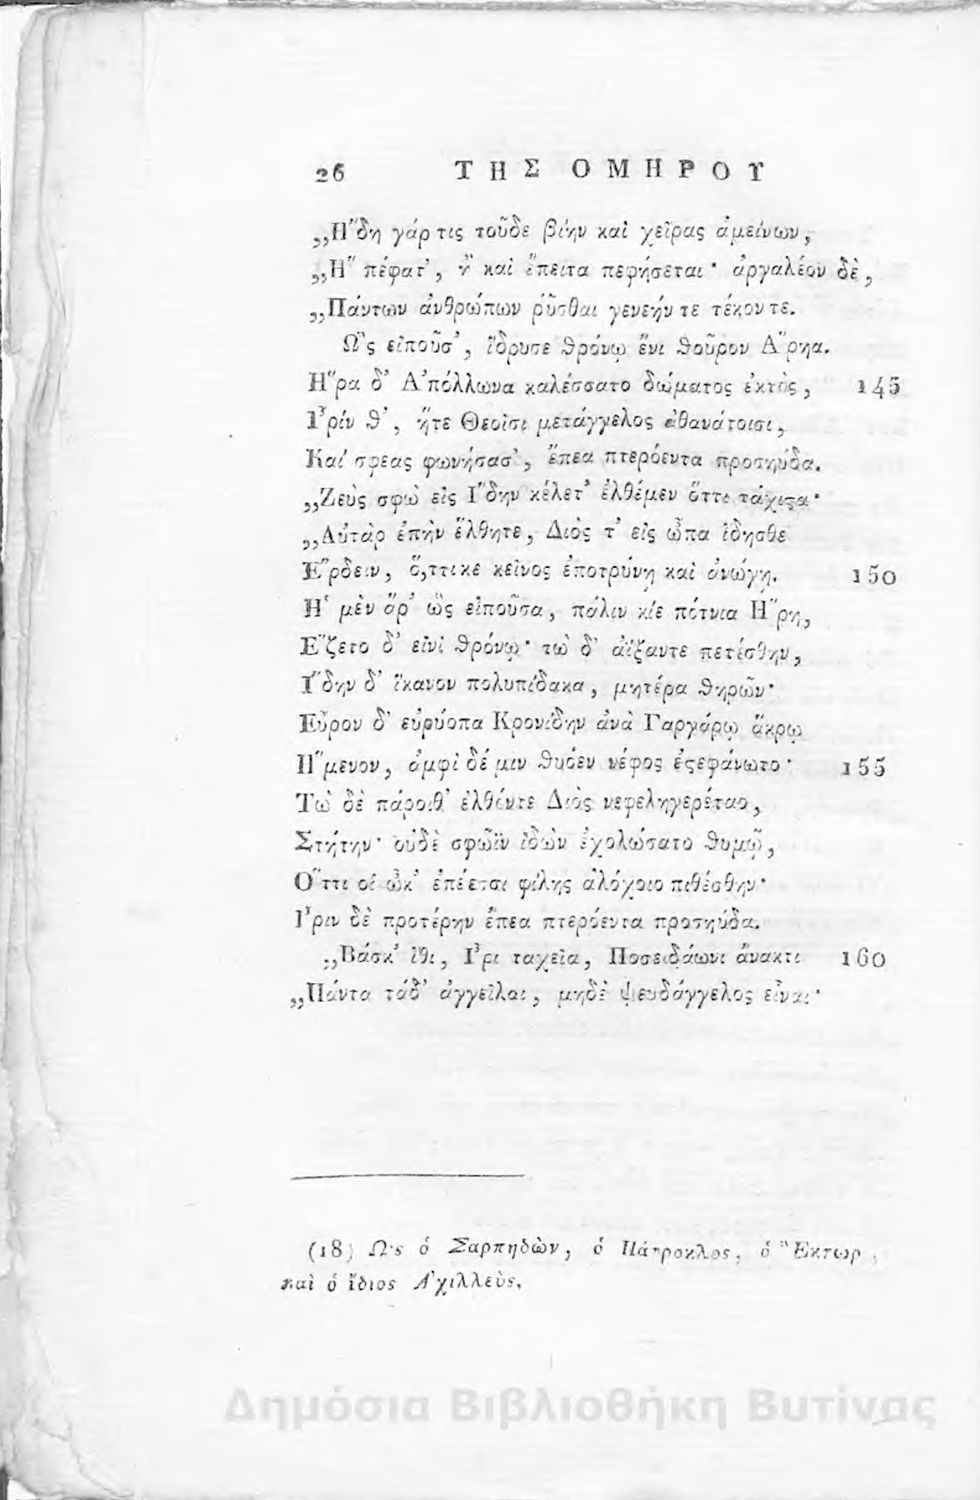 26 ΤΗΣ ΟΜΗΡΟΥ
„Η῎δη γάρ τις τοῦδε βίην καὶ χεῖρας ἀμείνων,
„Η῍ πέφατ', ἢ καὶ ἔπειτα πεφήσεται· ἀργαλέον δὲ,
„Πάντων ἀνθρώπων ῥῦσθαι γενεήν τε τέκον τε.
Ω῝ς εἰποῦσ', ἵδρυσε θρόνῳ ἔνι θοῦρον Α῎ρηα.
Η῞ρα δ' Α᾿πόλλωνα καλέσσατο δώματος ἐκτὸς, 145
Ι῏ρίν θ', ἥτε Θεοῖσι μετάγγελος ἀθανάτοισι,
Καί σφεας φωνήσασ', ἔπεα πτερόεντα προσηύδα.
„Ζεὺς σφὼ εἰς Ι῎δην κέλετ' ἐλθέμεν ὅττι τάχιϛα·
„Αὐτὰρ ἐπὴν ἔλθητε, Διός τ' εἰς ὦπα ἴδησθε
Ε῎ρδειν, ὅ,ττι κε κεῖνος ἐποτρύνῃ καὶ ἀνώγῃ. 150
Η῾ μὲν ἄρ' ὣς εἰποῦσα, πάλιν κίε πότνια Η῞ρη,
Ε῞ζετο δ' εἰνὶ θρόνῳ· τὼ δ' ἀΐξαντε πετέσθην,
Ι῎δην δ' ἵκανον πολυπίδακα, μητέρα θηρῶν·
Εὗρον δ' εὐρύοπα Κρονίδην ἀνὰ Γαργάρῳ ἄκρῳ
Η῞μενον, ἀμφὶ δέ μιν θυόεν νέφος ἐϛεφάνωτο· 155
Τὼ δὲ πάροιθ' ἐλθόντε Διὸς νεφεληγερέταο,
Στήτην· οὐδὲ σφῶϊν ἰδὼν ἐχολώσατο θυμῷ,
Ο῞ττι οἱ ὦκ' ἐπέεσσι φίλης ἀλόχοιο πιθέσθην·
Ι῏ριν δὲ προτέρην ἔπεα πτερόεντα προσηύδα.
„Βάσκ' ἴθι, Ι῏ρι ταχεῖα, Ποσειδάωνι ἄνακτι 160
„Πάντα τάδ' ἀγγεῖλαι, μηδὲ ψευδάγγελος εἶναι·
(18) Ω῾ς ὁ Σαρπηδὼν, ὁ Πάτροκλος, ὁ Ἕκτωρ,
καὶ ὁ ἴδιος Α᾿χιλλεὺς.
Δημόσια Βιβλιοθήκη Βυτίνας